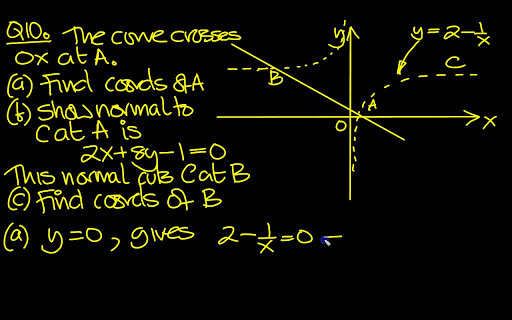 Q10. The curve crosses
Ox at A.
(a) Find coords of A
(b) Show normal to
C at A is
2x+8y-1=0
This normal cuts C at B
(c) Find coords of B
(a) y=0, gives 2-1/x=0 -
y
y=2-1/x
C
B
A
O
x